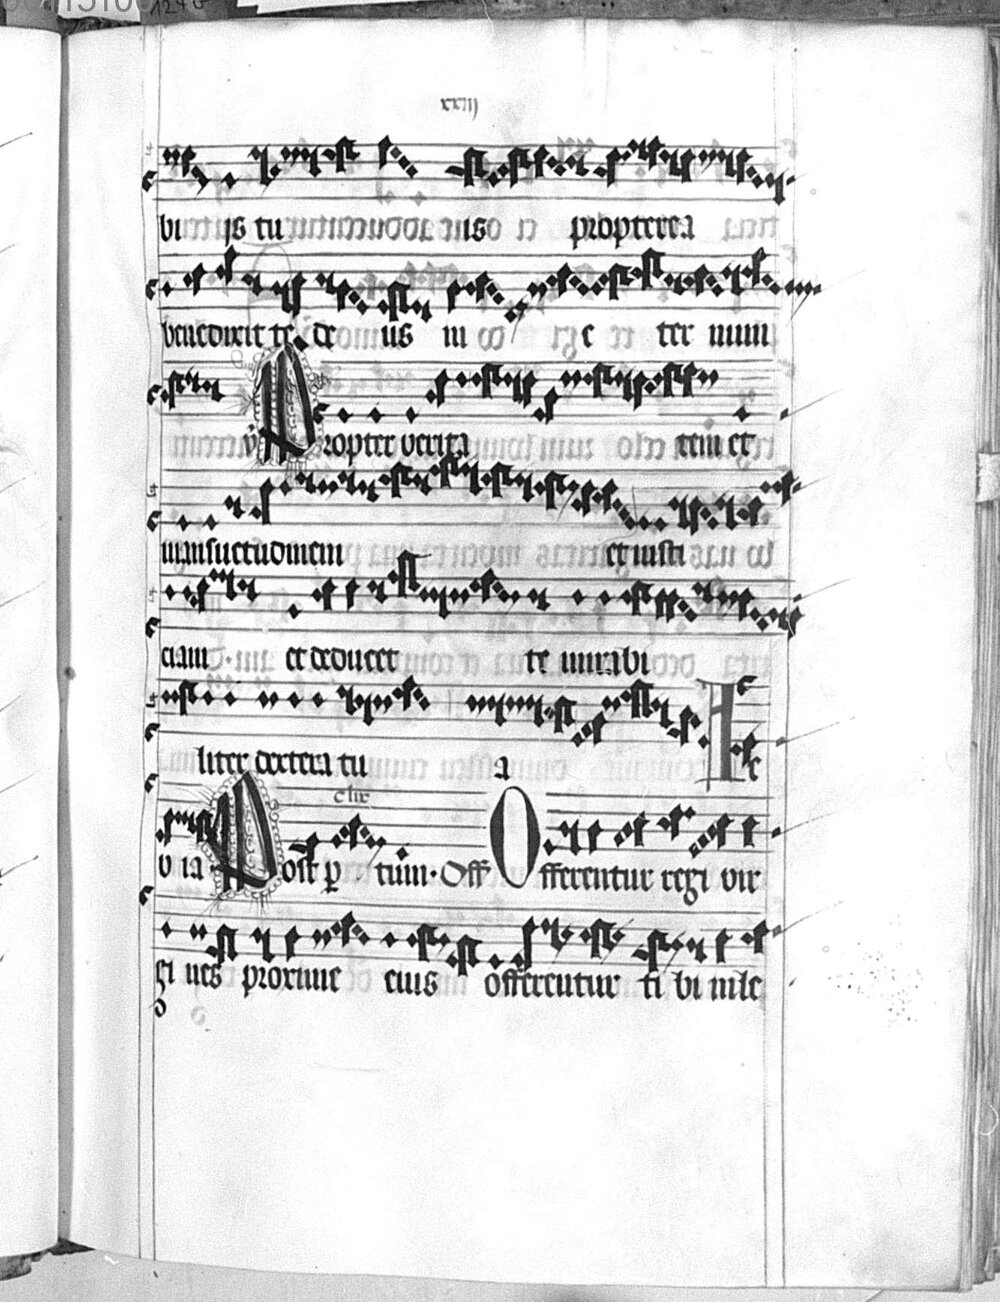 xxiij
bi ijs tu is propterea
benedixit te de us in e ter num
v Propter verita tem et
mansuetudinem et iusti
ciam et deducet te mirabi
liter dextera tu a A e
clix
v ia Post p tum. Off Offerentur regi vir
gi nes proxime eius offerentur ti bi in le